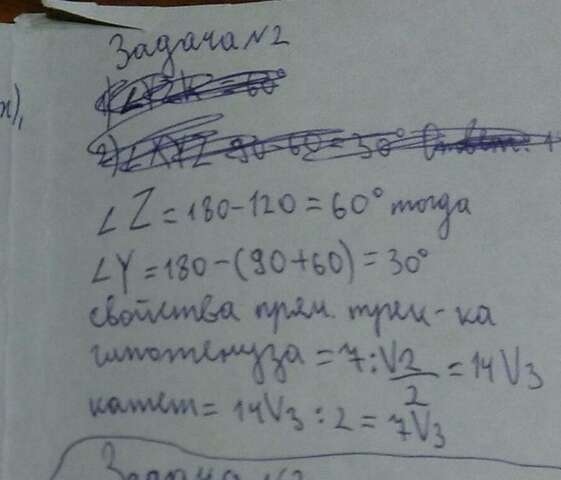 Задача N2
∠Z = 180-120 = 60° тогда
∠Y = 180-(90+60) = 30°
свойства прям. треу-ка
гипотенуза = 7:√2/2 = 14√3
катет = 14√3 : 2 = 7√3
Задача N3